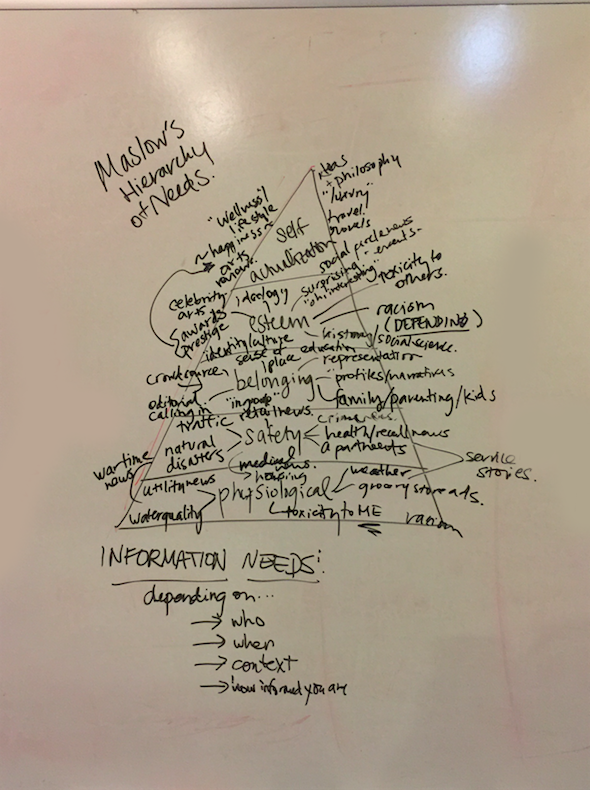 Maslow's
Hierarchy
of Needs.
ideas
+ philosophy
"luxury"
travel
novels
"wellness"/
lifestyle
~ happiness ~
arts
reviews
self
actualization
social parade news
surprising - events -
"oh interesting"
toxicity to
others.
celebrity
arts
awards
prestige
ideology
esteem
racism
(DEPENDING)
history/social science.
identity/culture
sense of
place
education
representation
crowdsource
belonging
profiles/narratives
family/parenting/kids
editorial
calling in
"in group"
traffic
retail news.
crime
safety
health/recall news
apartments
natural
disasters
wartime
news
medical
news.
housing
service
stories.
utility news
physiological
weather
grocery store ads.
water quality
toxicity to ME
racism
INFORMATION NEEDS:
depending on...
→ who
→ when
→ context
→ how informed you are